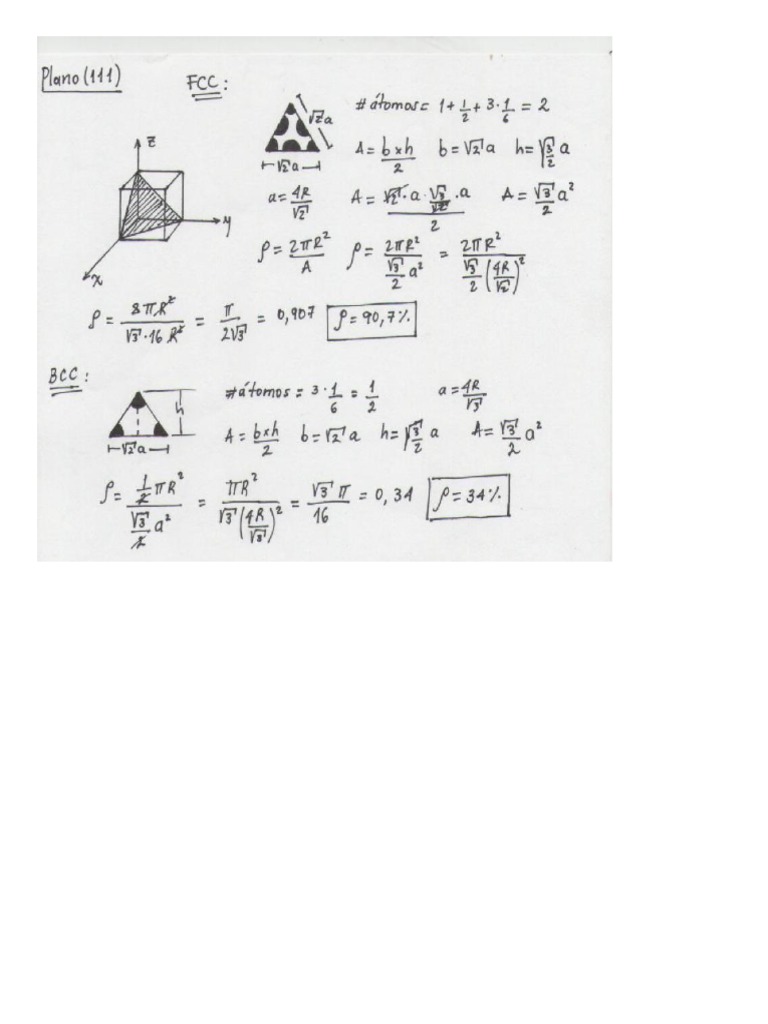 Plano (111)
FCC:
√2 a
√2 a
# átomos = 1 + 1/2 + 3·1/6 = 2
A = b x h / 2 b = √2 a h = √(3/2) a
a = 4R/√2 A = (√2 · a · √3/√2 · a)/2 A = √3/2 a²
z
y
x
ρ = 2πR²/A ρ = 2πR²/(√3/2 a²) = 2πR²/(√3/2 (4R/√2)²)
ρ = 8πR²/(√3·16R²) = π/(2√3) = 0,907 ρ = 90,7%
BCC:
h
√2 a
# átomos = 3·1/6 = 1/2 a = 4R/√3
A = b x h / 2 b = √2 a h = √(3/2) a A = √3/2 a²
ρ = (1/2 πR²)/(√3/2 a²) = πR²/(√3 (4R/√3)²) = √3 π/16 = 0,34 ρ = 34%